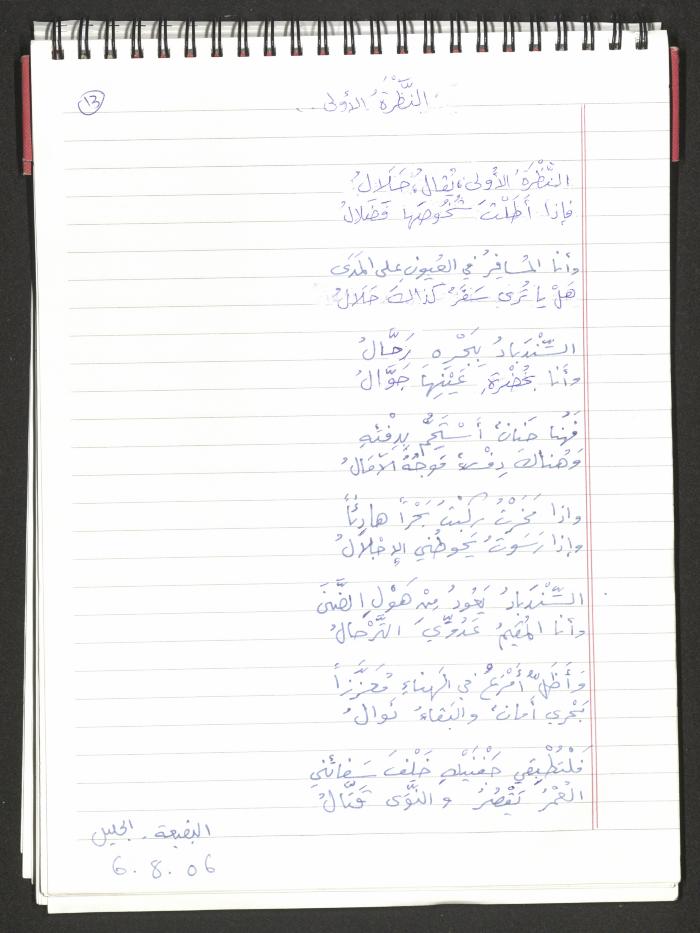 ١٣
النَّظْرَةُ الأولى...
النَّظْرَةُ الأولى، يُقالُ، حَلالُ
فإذا أَطَلْتَ شُخُوصَها فَضَلالُ
وأنا المُسافِرُ في العُيونِ على المَدَى
هَلْ يا تُرى سَفَرٌ كذاكَ حَلالُ
السِّنْدِبادُ بِبَحْرِهِ رَحَّالُ
وأنا بخُضْرَةِ عَيْنِها جَوَّالُ
فَهُنا حَنانٌ أَسْتَحِمُّ بِدِفْئِهِ
وَهُناكَ دِفْءٌ مَوجُهُ الآمَالُ
وإذا مَخَرْتُ رَكِبْتُ بَحْراً هادِئاً
وإذا رَسَوْتُ يَحوطُني الإجْلالُ
السِّنْدِبادُ يَعُودُ مِنْ هَوْلِ الضَّنَى
وأنا المُقِيمُ عَدُوِّيَ التَّرْحالُ
وَأَظَلُّ أَمْرَعُ في الهَناءِ مُعَزَّزاً
بَحْري أَمانٌ والبَقاءُ نَوالُ
فَلْتُطْبِقي جَفْنَيْكِ خَلْفَ سَفائني
العُمْرُ يَقْصُرُ والنَّوَى قَتَّالُ
البقيعة - الجليل
6. 8. 06